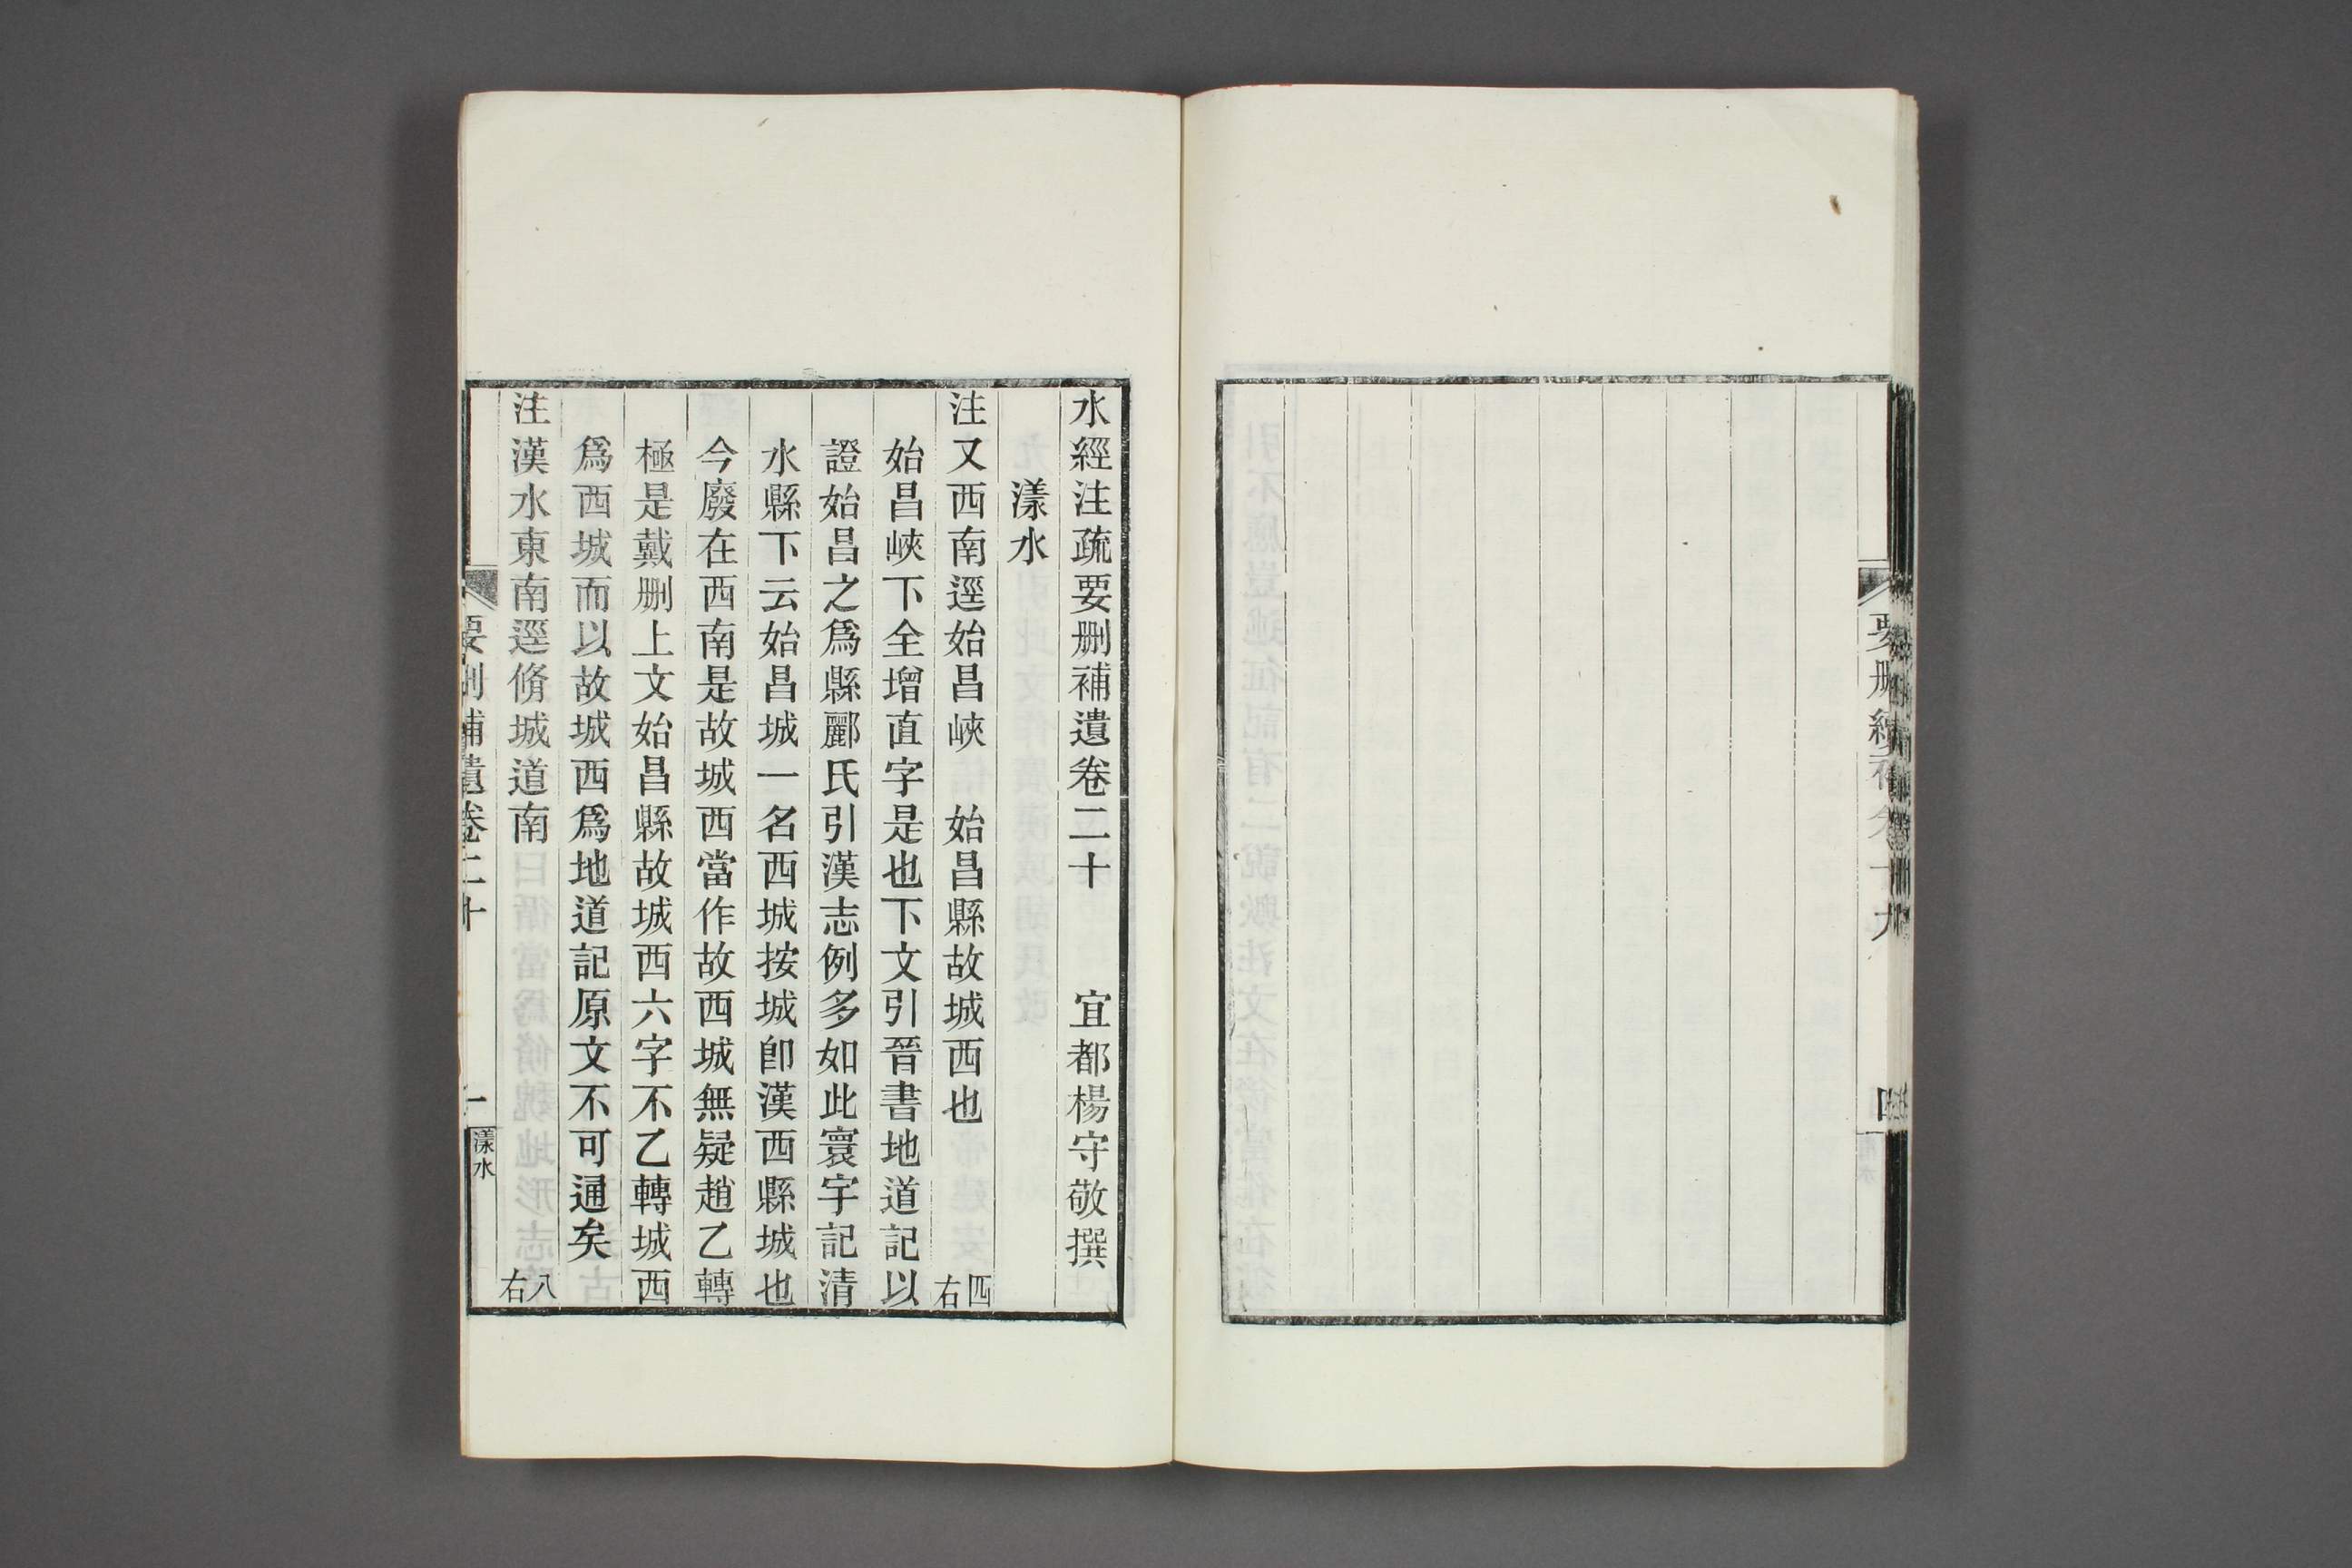 水經注疏要刪補遺卷二十　　宜都楊守敬撰
漾水
注又西南逕始昌峽　始昌縣故城西也　四右
始昌峽下全增直字是也下文引晉書地道記以
證始昌之爲縣酈氏引漢志例多如此寰宇記清
水縣下云始昌城一名西城按城卽漢西縣城也
今廢在西南是故城西當作故西城無疑趙乙轉
極是戴刪上文始昌縣故城西六字不乙轉城西
爲西城而以故城西爲地道記原文不可通矣
注漢水東南逕脩城道南　八右
要刪補遺卷二十　一　漾水